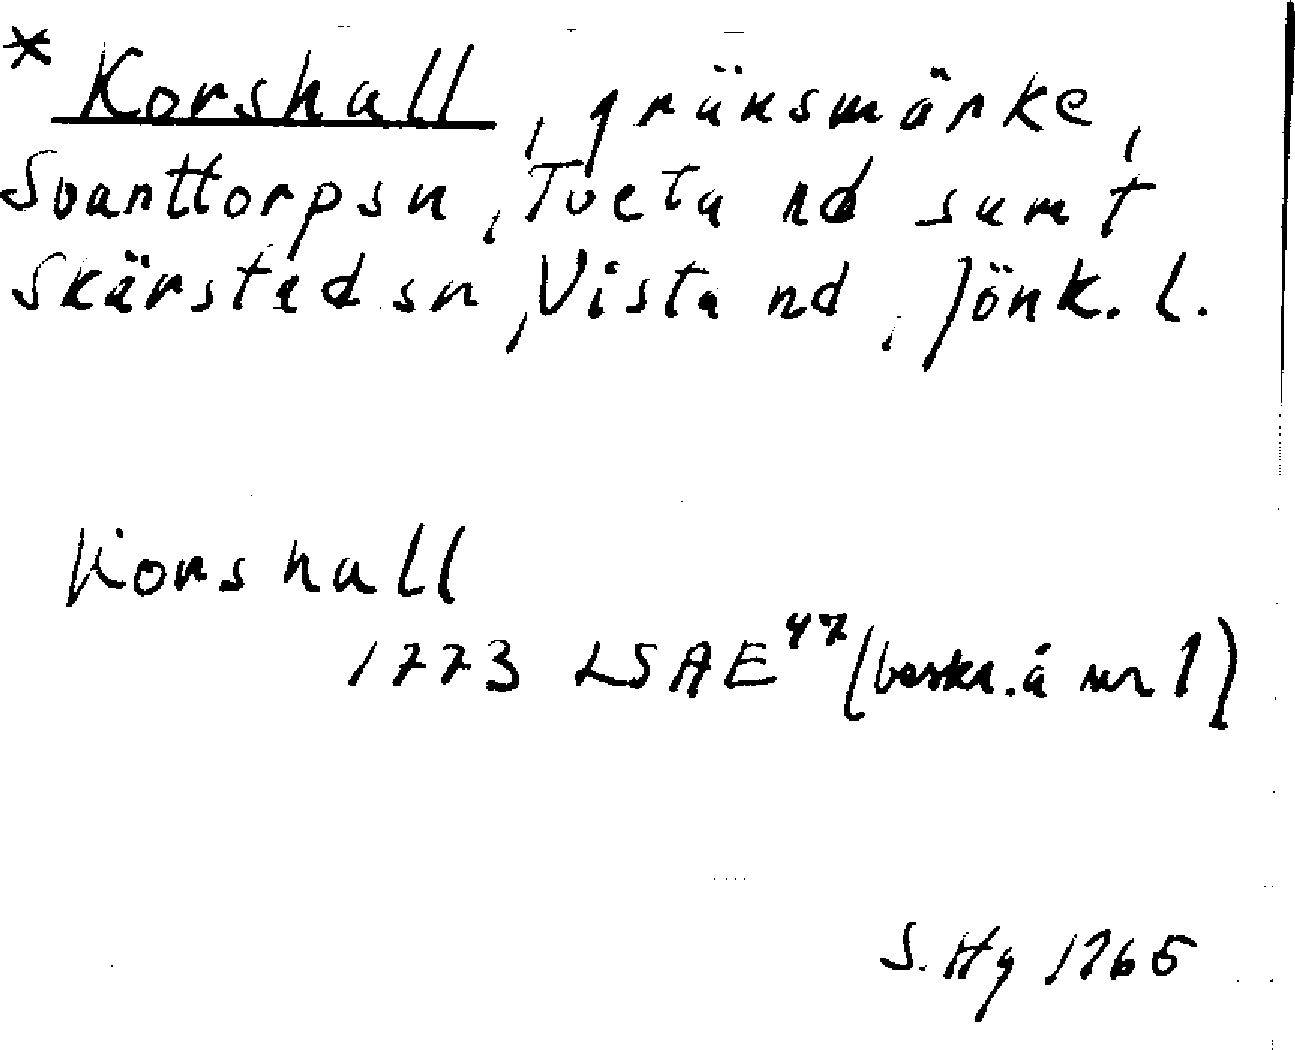 * Korshall, gränsmärke,
Svarttorpsn, Tveta hd samt
Skärstadsn, Vista hd, Jönk. l.
Korshall
1773 LSA E47 (beskr. å nr 1)
S. Hg 1965